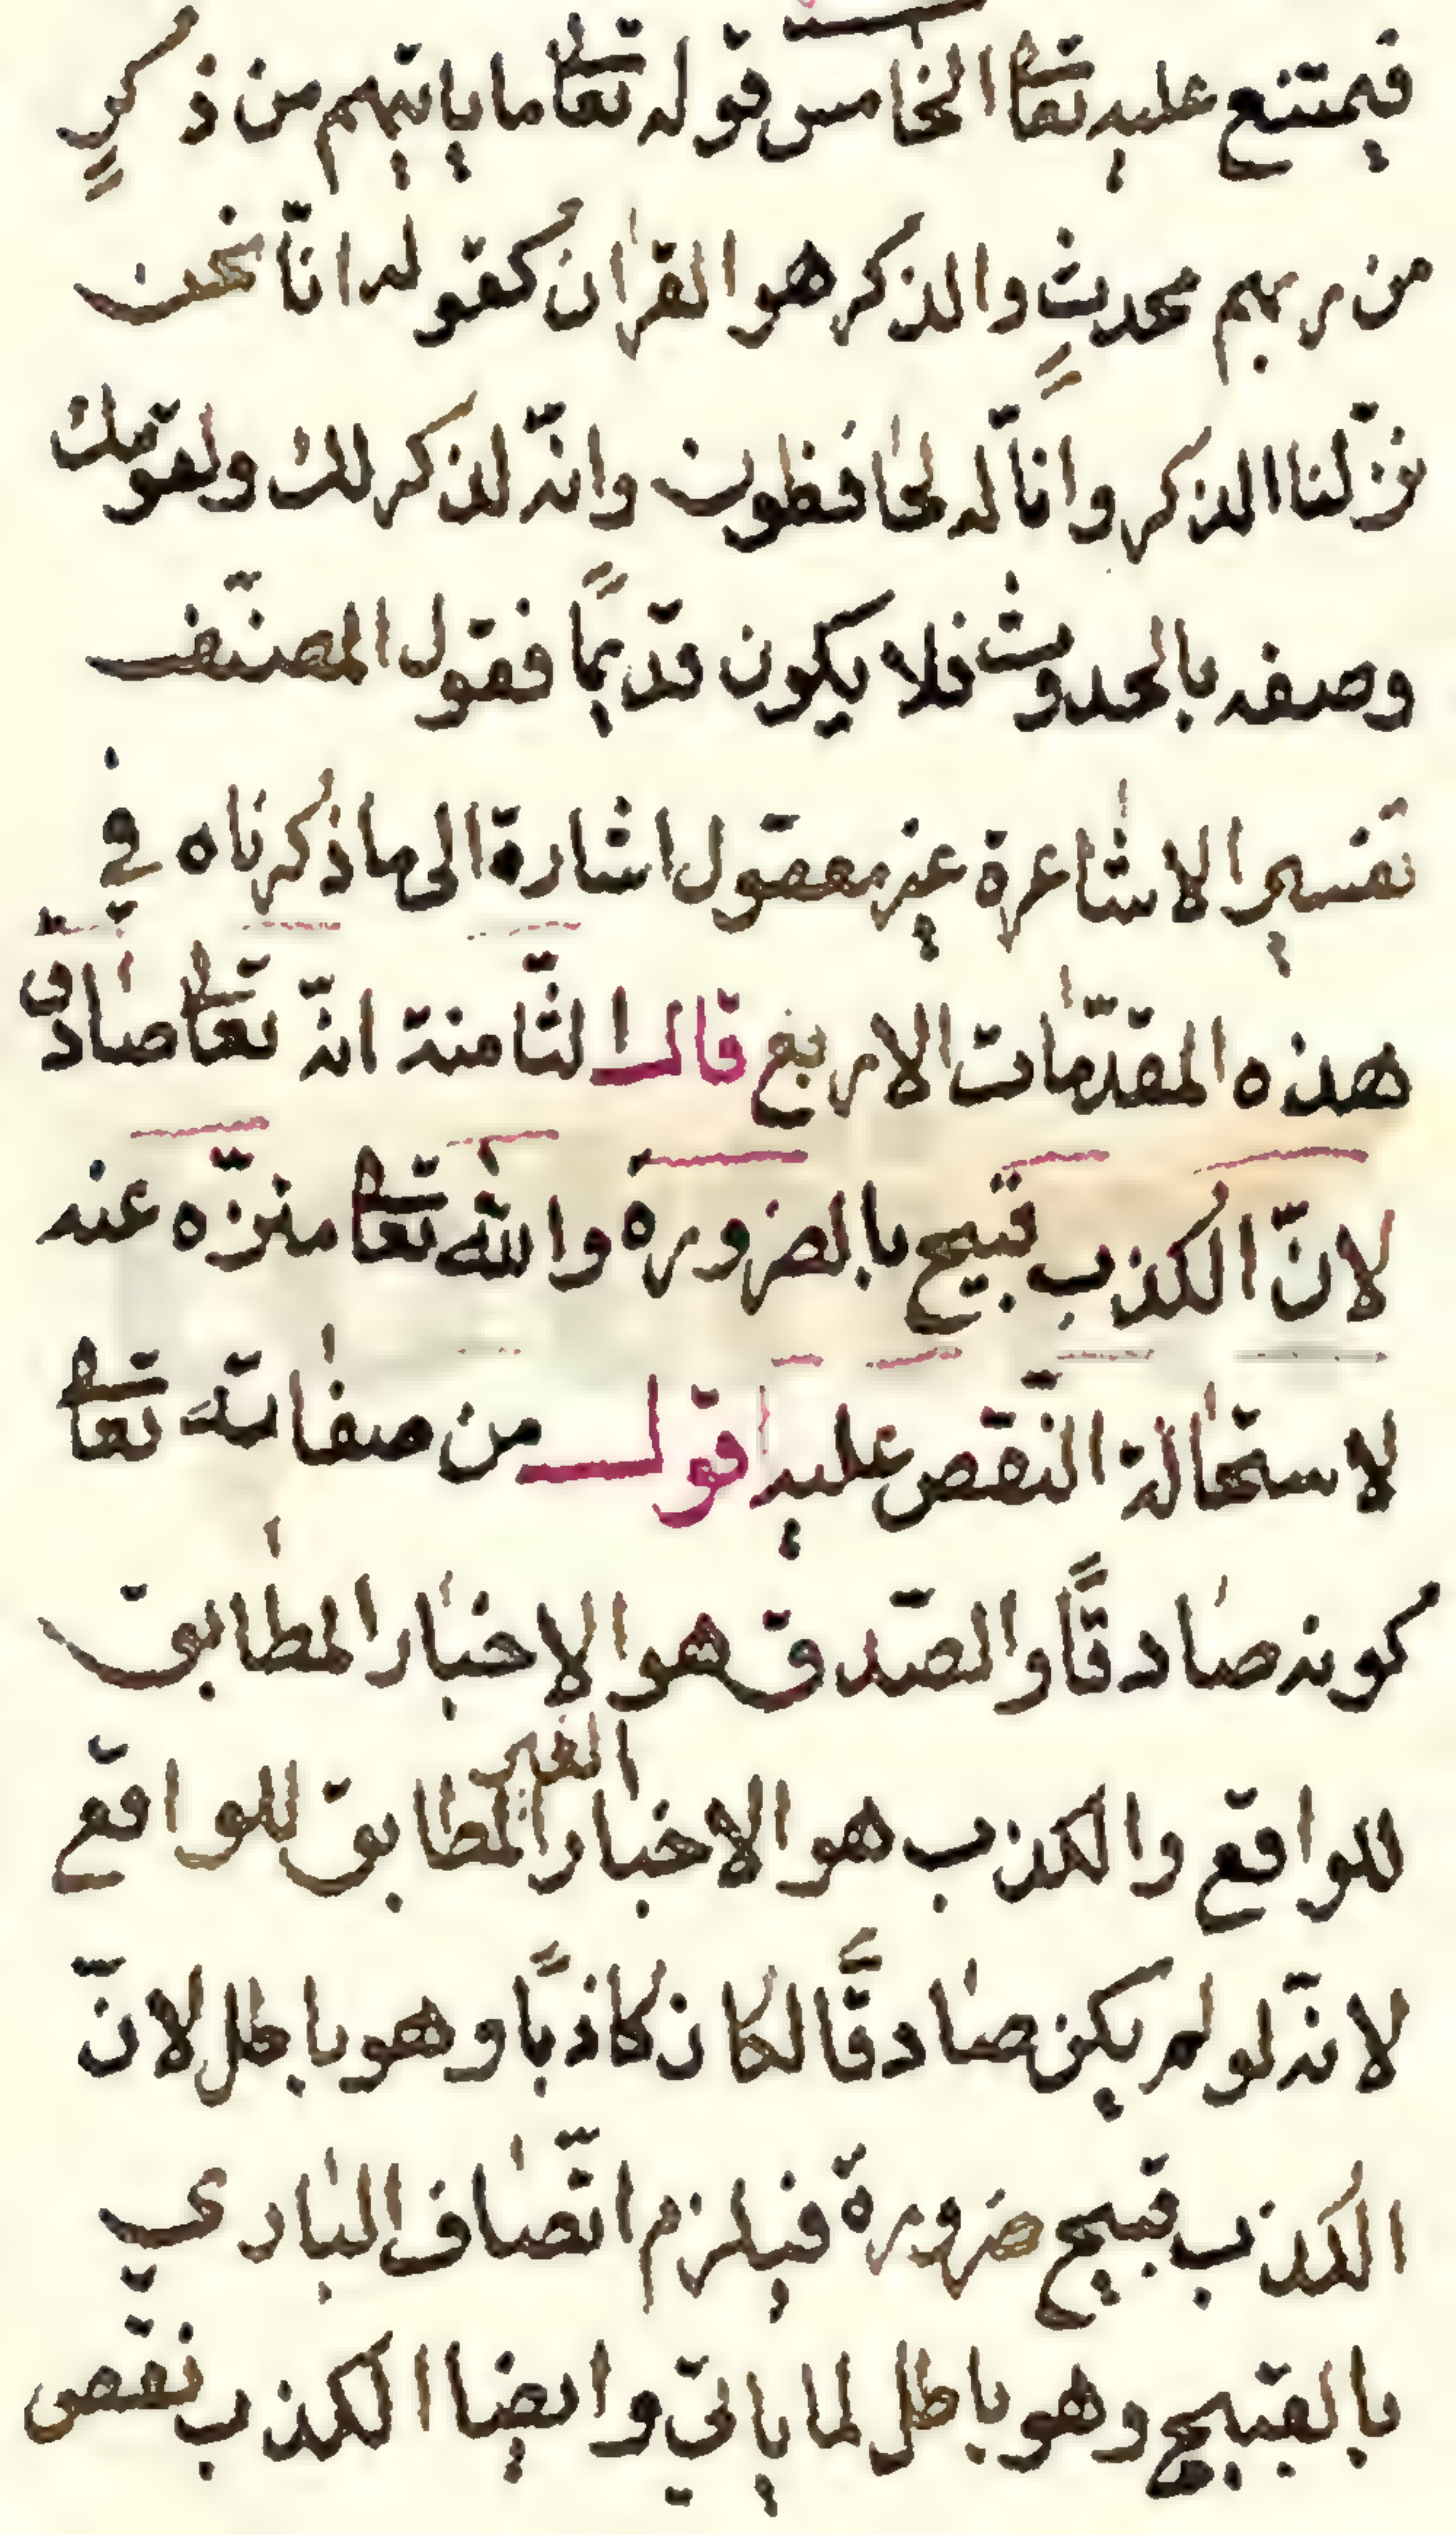 فيمتنع عليه تعا الخامس قوله تعا ما ياتيهم من ذكرٍ
من ربهم محدثٍ والذكر هو القران كقوله انّا نحن
نزّلنا الذكر وانّا له لحافظون وانّه لذكر لك ولقومك
وصفه بالحدوث فلا يكون قديمًا فقول المصنّف
تفسير الاشاعرة غير معقول اشارة الى ما ذكرناه في
هذه المقدّمات الاربع قال الثّامنة انّه تعا صادق
لانّ الكذب قبيح بالضرورة والله تعا منزّه عنه
لاستحالة النّقص عليه اقول من صفاته تعا
كونه صادقًا والصّدق هو الاخبار المطابق
للواقع والكذب هو الاخبار الغير المطابق للواقع
لانّه لو لم يكن صادقًا لكان كاذبًا وهو باطل لانّ
الكذب قبيح ضرورة فيلزم اتّصاف الباري
بالقبيح وهو باطل لما ياتي وايضا الكذب نقص